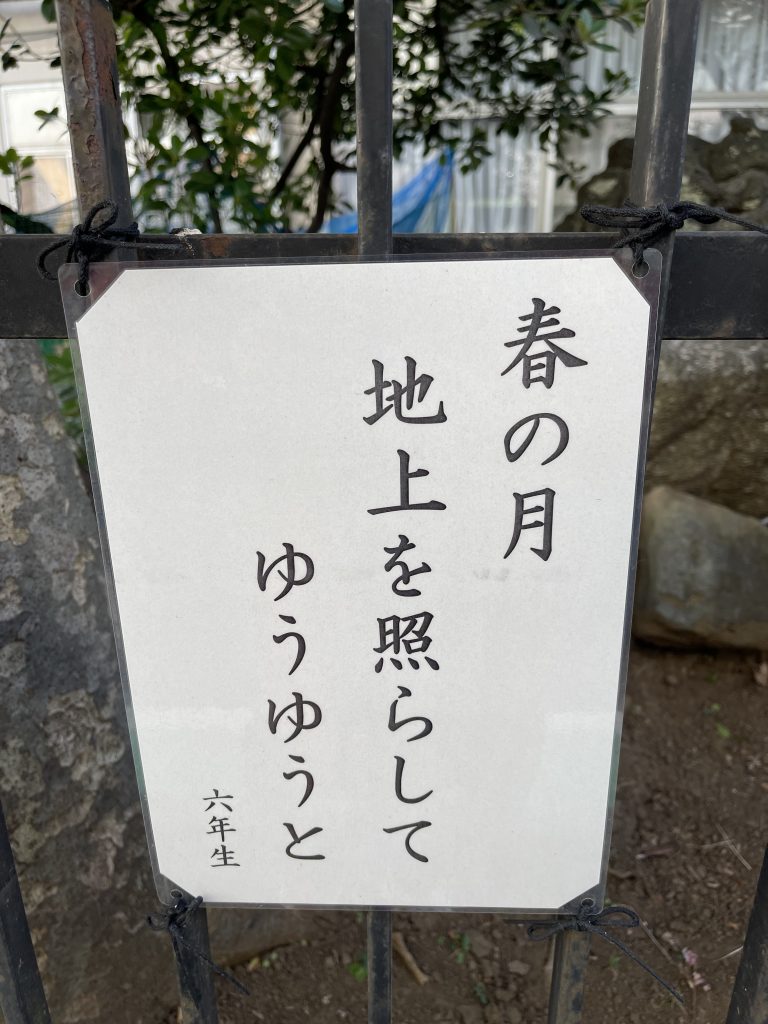 春の月
地上を照らして
ゆうゆうと
六年生